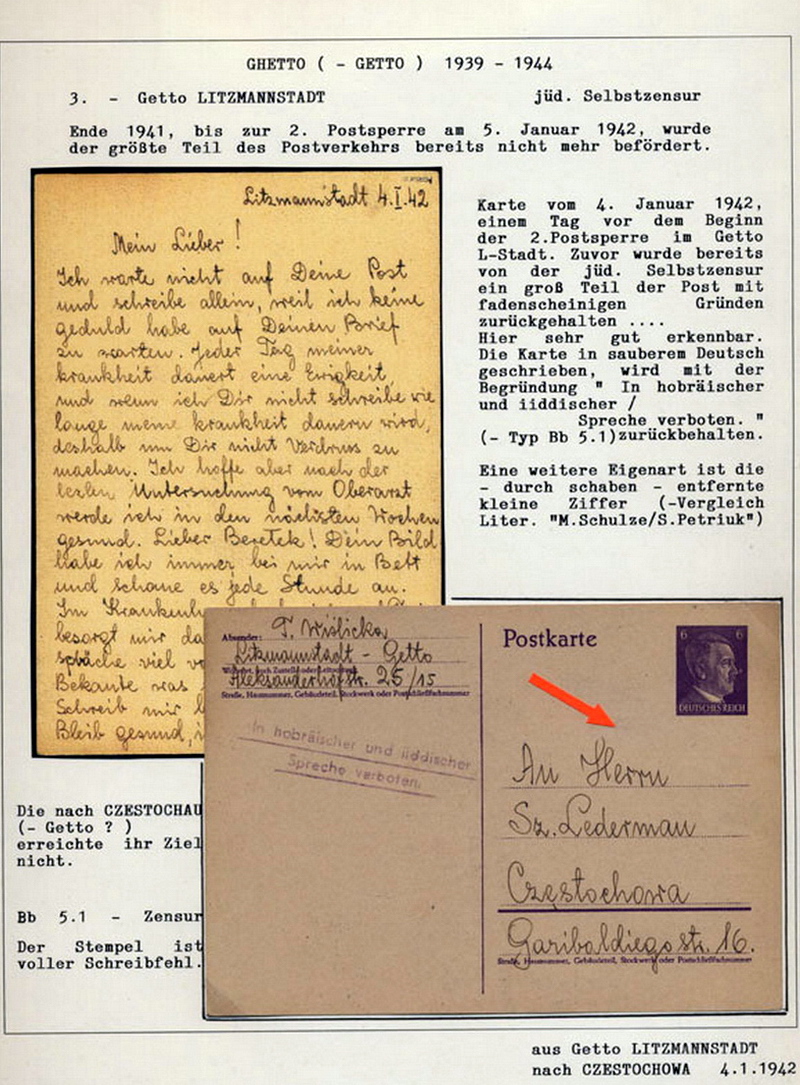 GHETTO ( - GETTO ) 1939 - 1944
3. - Getto LITZMANNSTADT jüd. Selbstzensur
Ende 1941, bis zur 2. Postsperre am 5. Januar 1942, wurde
der größte Teil des Postverkehrs bereits nicht mehr befördert.
Litzmannstadt 4.I.42
Mein Lieber!
Ich warte nicht auf Deine Post
und schreibe allein, weil ich keine
geduld habe auf Deinen Brief
zu warten. Jeder Tag meiner
krankheit dauert eine Ewigkeit,
und wenn ich Dir nicht schreibe wie
lange meine krankheit dauern wird,
deshalb um Dir nicht Verdruss zu
machen. Ich hoffe aber nach der
lezten Untersuchung vom Oberarzt
werde ich in den nächsten Wochen
gesund. Lieber Beretek! Dein Bild
habe ich immer bei mir in Bett
und schaue es jede Stunde an.
Im Krankenh
besorgt mir da
viel
Bekante was
Schreib mir
Bleib gesund,
Karte vom 4. Januar 1942,
einem Tag vor dem Beginn
der 2.Postsperre im Getto
L-Stadt. Zuvor wurde bereits
von der jüd. Selbstzensur
ein groß Teil der Post mit
fadenscheinigen Gründen
zurückgehalten ....
Hier sehr gut erkennbar.
Die Karte in sauberem Deutsch
geschrieben, wird mit der
Begründung " In hobräischer
und iiddischer /
Spreche verboten. "
(- Typ Bb 5.1)zurückbehalten.
Eine weitere Eigenart ist die
- durch schaben - entfernte
kleine Ziffer (-Vergleich
Liter. "M.Schulze/S.Petriuk")
Absender: T. Wiślicka
Litzmannstadt - Getto
Aleksanderhofstr. 25/15
Straße, Hausnummer, Gebäudeteil, Stockwerk oder Postschließfachnummer
In hobräischer und iiddischer
Spreche verboten.
Postkarte
6 6
DEUTSCHES REICH
An Herrn
Sz. Lederman
Częstochowa
Garibaldiego str. 16.
Straße, Hausnummer, Gebäudeteil, Stockwerk oder Postschließfachnummer
Die nach CZESTOCHAU
(- Getto ? )
erreichte ihr Ziel
nicht.
Bb 5.1 - Zensur
Der Stempel ist
voller Schreibfehl.
aus Getto LITZMANNSTADT
nach CZESTOCHOWA 4.1.1942